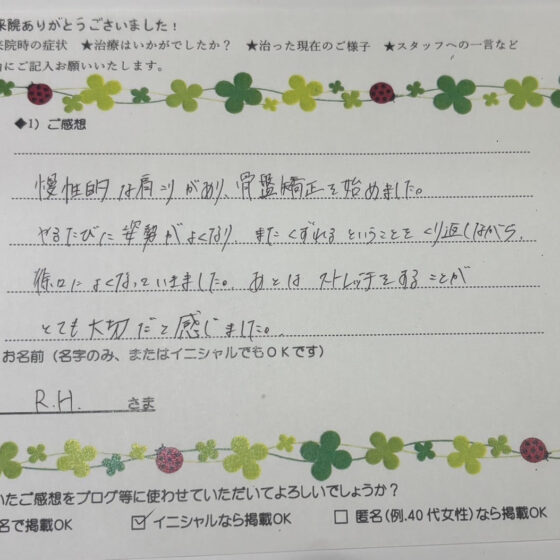 来院ありがとうございました！
来院時の症状　★治療はいかがでしたか？　★治った現在のご様子　★スタッフへの一言など
にご記入お願いいたします。
◆1）ご感想
慢性的な肩こりがあり、骨盤矯正を始めました。
やるたびに姿勢がよくなり、またくずれるということをくり返しながら、
徐々によくなっていきました。あとはストレッチをすることが
とても大切だと感じました。
お名前（名字のみ、またはイニシャルでもOKです）
R.H.　さま
いたご感想をブログ等に使わせていただいてよろしいでしょうか？
名で掲載OK　☑イニシャルなら掲載OK　□匿名（例.40代女性）なら掲載OK